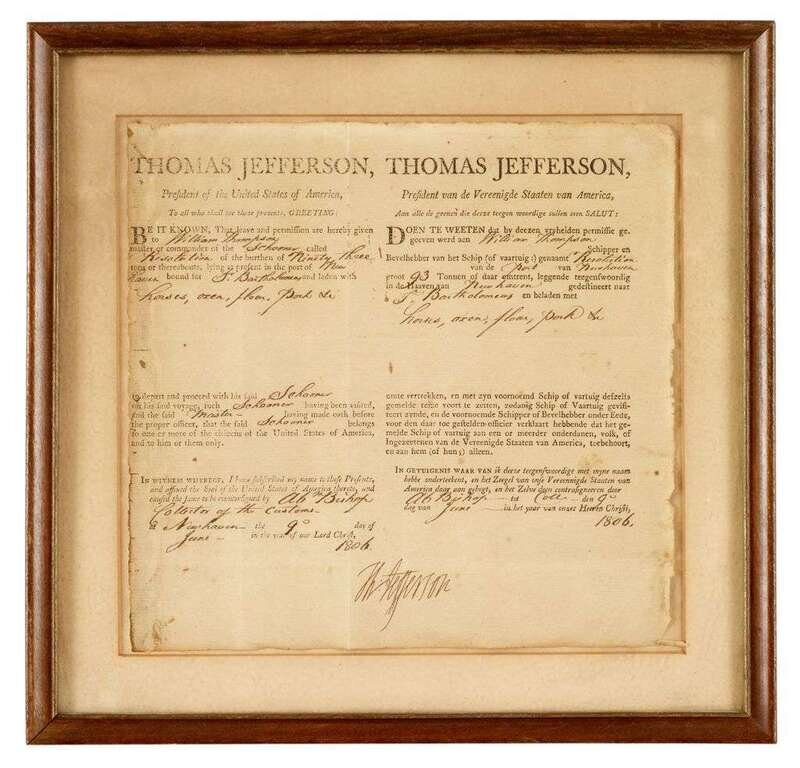 THOMAS JEFFERSON,
President of the United States of America,
To all who shall see these presents, GREETING:
BE IT KNOWN, That leave and permission are hereby given
to William Thompson
master or commander of the Schooner called
Resolution of the burthen of Ninety three
tons or thereabouts, lying at present in the port of New
haven bound for St. Bartholomews and laden with
horses, oxen, flour, pork &c
to depart and proceed with his said Schooner
on his said voyage, such Schooner having been visited,
and the said Master having made oath before
the proper officer, that the said Schooner belongs
to one or more of the citizens of the United States of America,
and to him or them only.
IN WITNESS WHEREOF, I have subscribed my name to these Presents,
and affixed the Seal of the United States of America thereto, and
caused the same to be countersigned by Abm Bishop
Collector of the Customs
at Newhaven the 9º day of
June in the year of our Lord Christ,
1806.
THOMAS JEFFERSON,
President van de Vereenigde Staaten van America,
Aan alle de geenen die deeze tegenwoordige zullen zien SALUT:
DOEN TE WEETEN dat by deezen vryheiden permissie ge-
geeven werd aan William Thompson
Schipper en
Bevelhebber van het Schip (of vaartuig) genaamt Resolution
van de port van Newhaven
groot 93 Tonnen of daar omtrent, leggende tegenwoordig
in de Haaven van Newhaven gedestineert naar
St. Bartholomews en beladen met
horses, oxen, flour, pork &c
omte vertrekken, en met zyn voornoemd Schip of vartuig deszelfs
gemelde reize voort te zetten, zodanig Schip of Vaartuig gevisi-
teert zynde, en de voornoemde Schipper of Bevelhebber onder Eede,
voor den daar toe gestelden officier verklaart hebbende dat het ge-
melde Schip of vartuig aan een of meerder onderdanen, volk, of
Ingezeetenen van de Vereenigde Staaten van America, toebehoort,
en aan hem (of hun) alleen.
IN GETUIGENIS WAAR VAN ik deeze tegenswoordige met myne naam
hebbe onderteekent, en het Zeegel van onse Vereenigde Staaten van
America daar aan gehegt, en het Zelve doen contrasigneeren door
Ab Bishop to Coll den 9º
dag van June in het jaar van onsen Heeren Christi,
1806.
Th: Jefferson